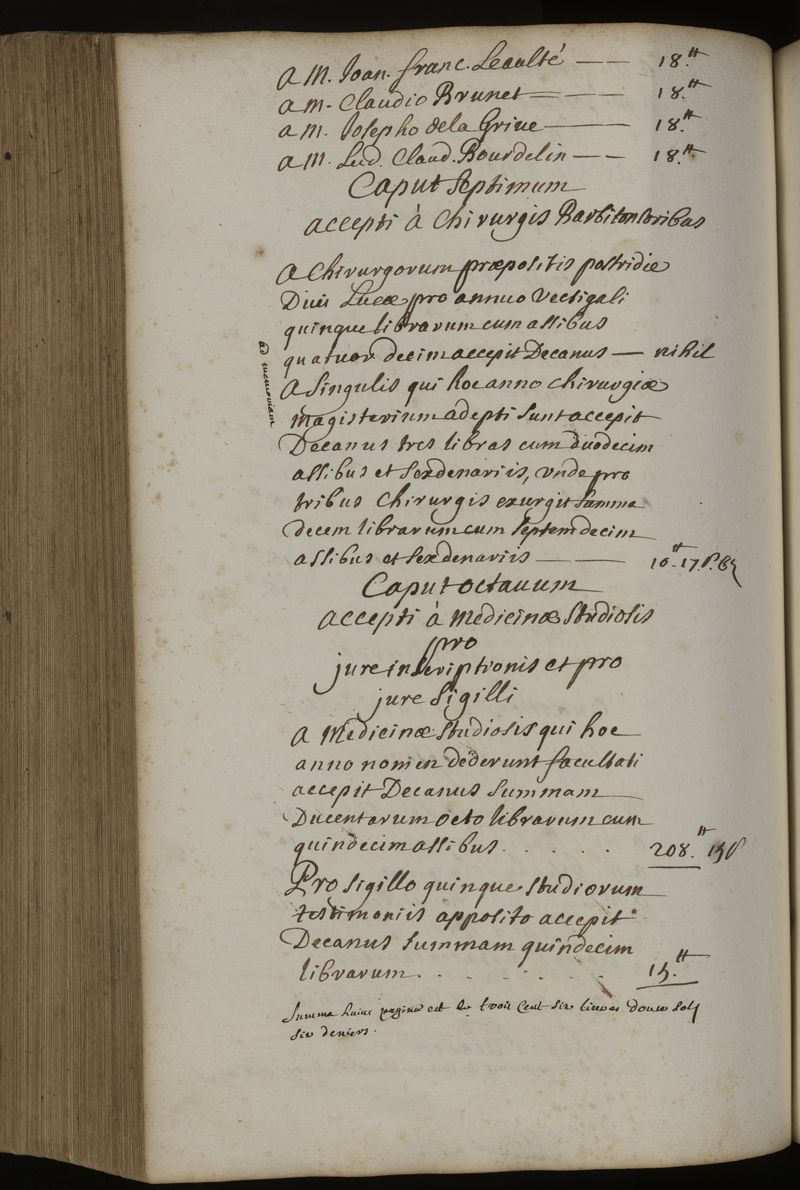 a M. Joan. franc. Leaulté —— 18.tt
a M. Claudio Brunet —— 18.tt
a M. Josepho de la Grive —— 18.tt
a M. Lud. Claud. Bourdelin —— 18.tt
Caput Septimum
accepti à Chirurgis Barbitonsoribus
a Chirurgorum præpositis postridie
Divi Lucæ pro annuo Vectigali
quinque librarum cum assibus
quatuor decim accepit Decanus — nihil
ad memoriam
a Singulis qui hoc anno chirurgiæ
magisterium adepti sunt accepit
Decanus tres libras cum duodecim
assibus et sex denariis, unde pro
tribus Chirurgis exurgit summa
decem librarum cum septemdecim
assibus et sex denariis —— 10.tt 17.s. 6
Caput octauum
accepti à Medicinæ Studiosis
pro
jure inscriptionis et pro
jure Sigilli
a Medicinæ studiosis qui hoc
anno nomen dederunt facultati
accepit Decanus Summam
Ducentarum octo librarum cum
quindecim assibus . . . . . 208.tt 15s
Pro sigillo quinque studiorum
testimoniis apposito accepit
Decanus summam quindecim
librarum . . . . . . . 15.tt
Summa huius paginæ est de trois Cent Six livres douze Sols
six deniers.